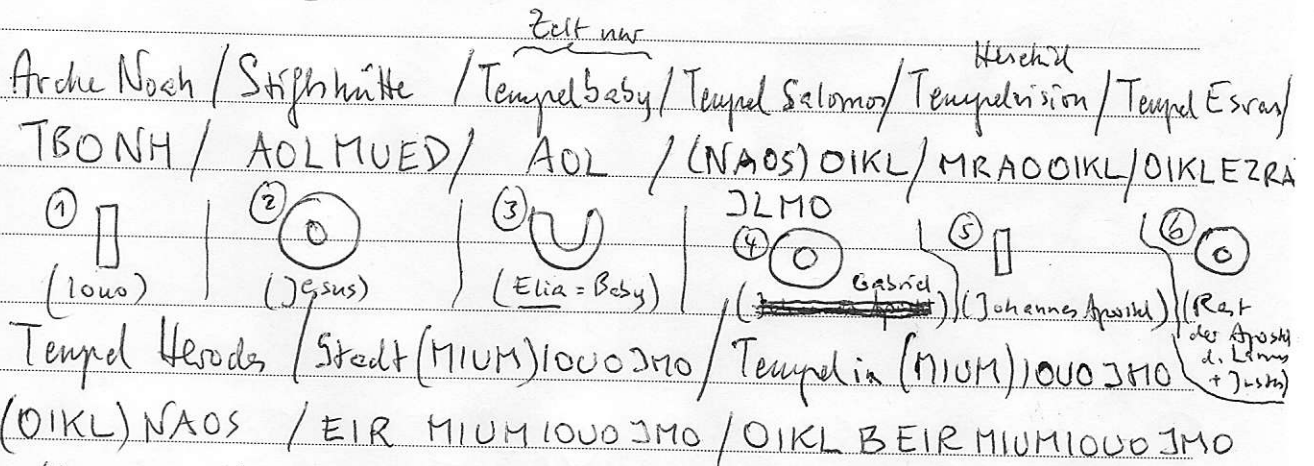 Zelt nur
Hesekiel
Arche Noah / Stiftshütte / Tempelbaby / Tempel Salomos / Tempelvision / Tempel Esras /
TBONH / AOLMUED / AOL / (NAOS) OIKL / MRAOOIKL / OIKLEZRA
JLMO
① ② ③ ④ ⑤ ⑥
(IOUO) (Jesus) (Elia = Baby) ( Gabriel ) (Johannes Apostel) (Rest
der Apostel
d. Lammes
+ Justus)
Tempel Herodes / Stadt (MIUM) IOUO JMO / Tempel in (MIUM) IOUO JMO
(OIKL) NAOS / EIR MIUM IOUO JMO / OIKL B EIR MIUM IOUO JMO